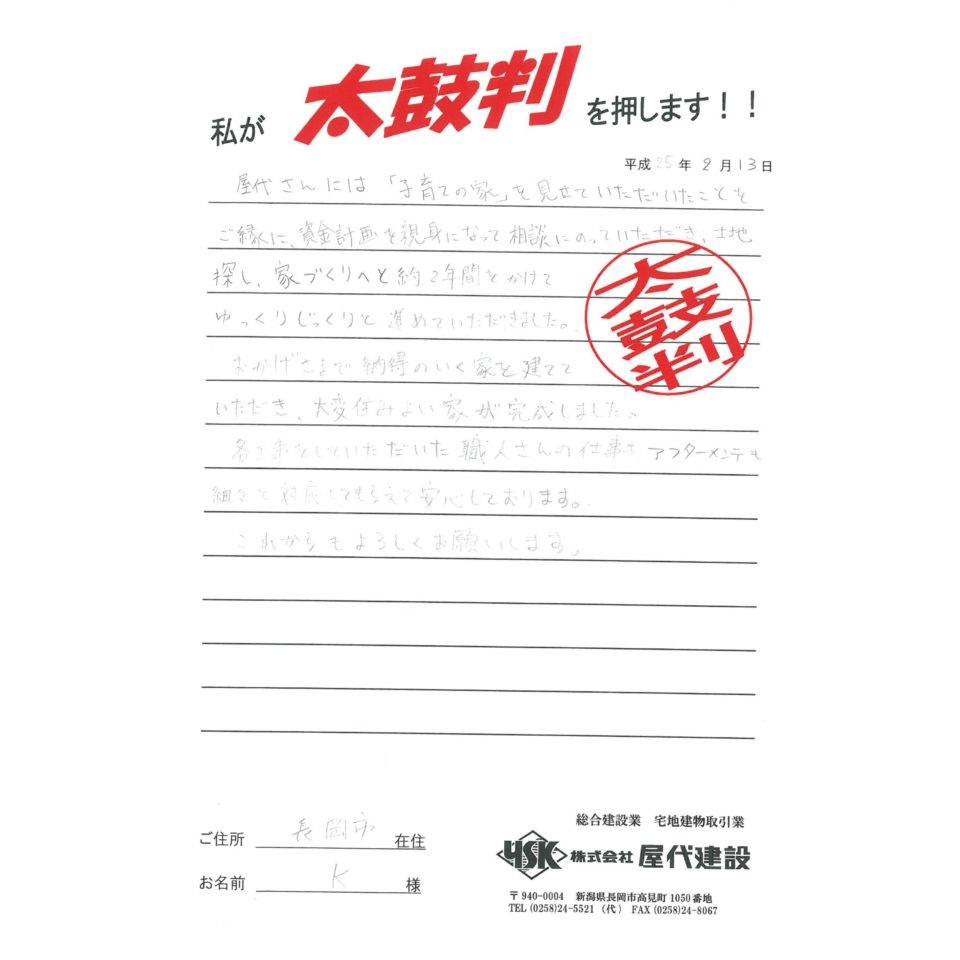 私が 太鼓判 を押します！！
平成 25 年 9 月 13 日
屋代さんには「子育ての家」を見せていただいたことを
ご縁に、資金計画を親身になって相談にのっていただき、土地
探し、家づくりへと約2年間をかけて
ゆっくりじっくりと進めていただきました。
おかげさまで納得のいく家を建てて
いただき、大変住みよい家が完成しました。
各工事をしていただいた職人さんの仕事もアフターメンテも
細々と対応してもらえて安心しております。
これからもよろしくお願いします。
太鼓判
ご住所 長岡市 在住
お名前 K 様
総合建設業 宅地建物取引業
YSK 株式会社 屋代建設
〒940-0004 新潟県長岡市高見町1050番地
TEL (0258)24-5521 (代) FAX (0258)24-8067